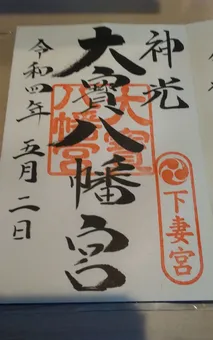 神光
大寳八幡宮
大寳
八幡宮
下妻宮
令和四年 五月二日